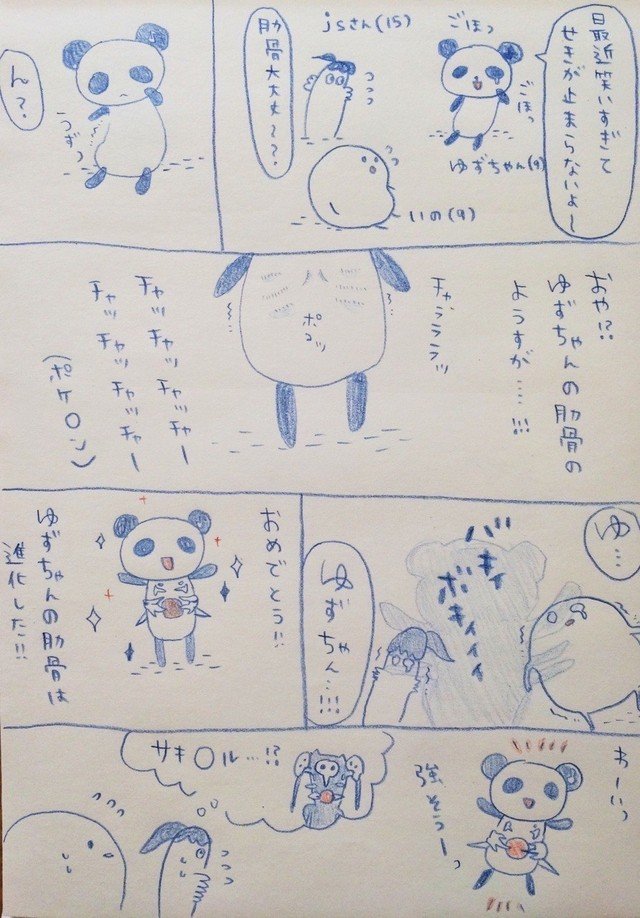 日最近笑いすぎて
せきが止まらないよ〜
ごほっ
ごほっ
ゆずちゃん(9)
jsさん(15)
肋骨大丈夫〜？
いの(9)
ん？
うずっ
おや!?
ゆずちゃんの肋骨の
ようすが……!!!
チャラララッ
ポコッ
チャッチャッチャッチャー
チャッチャッチャッチャー
(ポケ〇ン)
ゆ…
バキィ
ボキィィィ
ゆずちゃん…!!!
おめでとう!!
ゆずちゃんの肋骨は
進化した!!
わーいっ
強そうーっ
サキ〇ル…!?